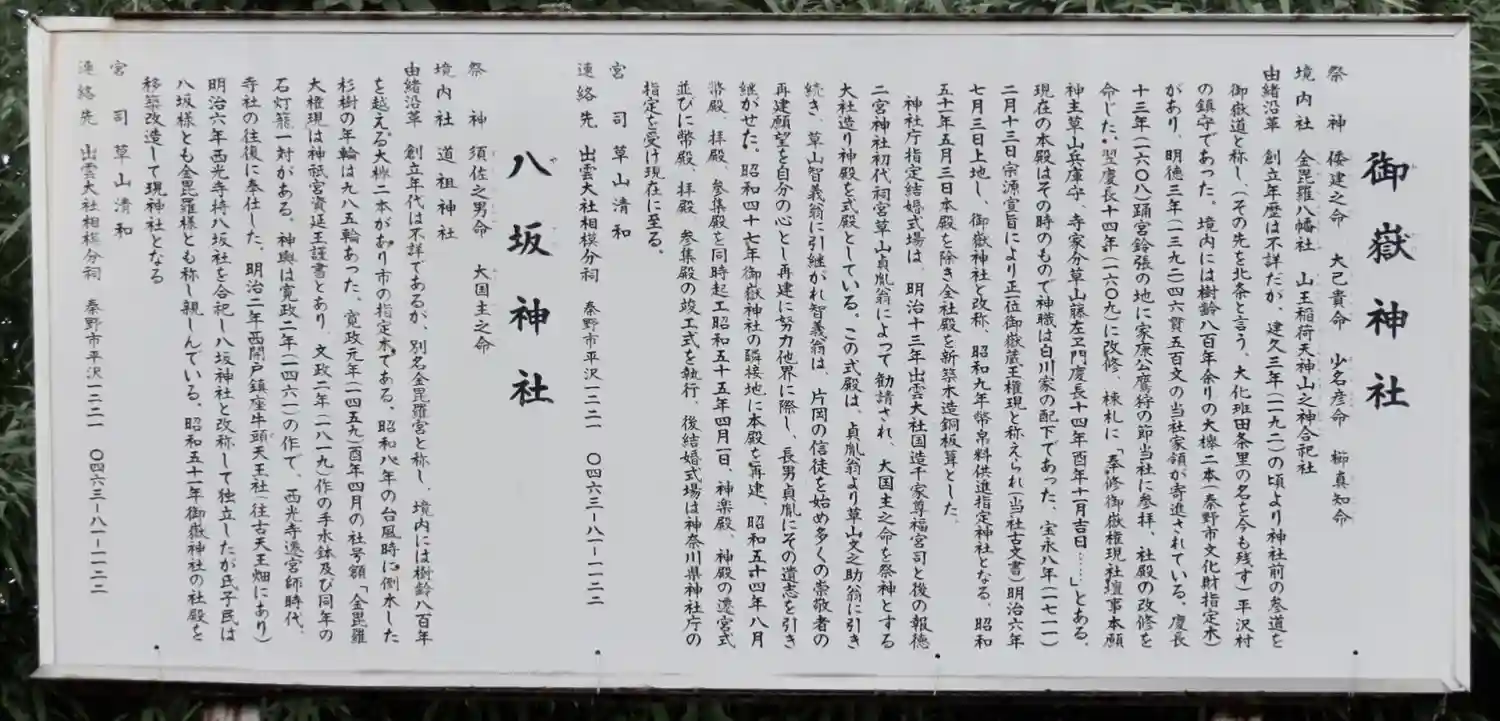 御嶽神社
祭神 倭建之命 大己貴命 少名彦命 櫛真知命
境内社 金毘羅八幡社 山王稲荷天神山之神合祀社
由緒沿革 創立年歴は不詳だが、建久三年(一一九二)の頃より神社前の参道を
御嶽道と称し、(その先を北条と言う、大化班田条里の名を今も残す)平沢村
の鎮守であった。境内には樹齢八百年余りの大欅二本(秦野市文化財指定木)
があり、明徳三年(一三九二)四六貫五百文の当社家領が寄進されている。慶長
十三年(一六〇八)踊宮鈴張の地に家康公鷹狩の節当社に参拝、社殿の改修を
命じた。翌慶長十四年(一六〇九)に改修、棟札に「奉修御嶽権現社壇事本願
神主草山兵庫守、寺家分草山藤左ヱ門慶長十四年酉年十一月吉日……」とある。
現在の本殿はその時のもので神職は白川家の配下であった、宝永八年(一七一一)
二月十三日宗源宣旨により正一位御嶽蔵王権現と称えられ(当社古文書)明治六年
七月三日上地し、御嶽神社と改称、昭和九年幣帛料供進指定神社となる。昭和
五十一年五月三日本殿を除き全社殿を新築木造銅板葺とした。
神社庁指定結婚式場は、明治十三年出雲大社国造千家尊福宮司と後の報徳
二宮神社初代祠宮草山貞胤翁によって勧請され、大国主之命を祭神とする
大社造り神殿を式殿としている。この式殿は、貞胤翁より草山文之助翁に引き
続き、草山智義翁に引継がれ智義翁は、片岡の信徒を始め多くの崇敬者の
再建願望を自分の心とし再建に努力他界に際し、長男貞胤にその遺志を引き
継がせた。昭和四十七年御嶽神社の隣接地に本殿を再建、昭和五十四年八月
幣殿、拝殿、参集殿を同時起工昭和五十五年四月一日、神楽殿、神殿の遷宮式
並びに幣殿、拝殿、参集殿の竣工式を執行、後結婚式場は神奈川県神社庁の
指定を受け現在に至る。
宮司 草山清和
連絡先 出雲大社相模分祠 秦野市平沢一二二一 〇四六三-八一-一一二二
八坂神社
祭神 須佐之男命 大国主之命
境内社 道祖神社
由緒沿革 創立年代は不詳であるが、別名金毘羅宮と称し、境内には樹齢八百年
を越える大欅二本があり市の指定木である。昭和八年の台風時に倒木した
杉樹の年輪は九八五輪あった、寛政元年(一四五九)酉年四月の社号額「金毘羅
大権現は神祇宮資延王謹書とあり、文政二年(一八一九)作の手水鉢及び同年の
石灯篭一対がある。神輿は寛政二年(一四六一)の作で、西光寺遷宮師時代、
寺社の往復に奉仕した。明治二年西開戸鎮座牛頭天王社(往古天王畑にあり)
明治六年西光寺持八坂社を合祀し八坂神社と改称して独立したが氏子民は
八坂様とも金毘羅様とも称し親しんでいる。昭和五十一年御嶽神社の社殿を
移築改造して現神社となる
宮司 草山清和
連絡先 出雲大社相模分祠 秦野市平沢一二二一 〇四六三-八一-一一二二